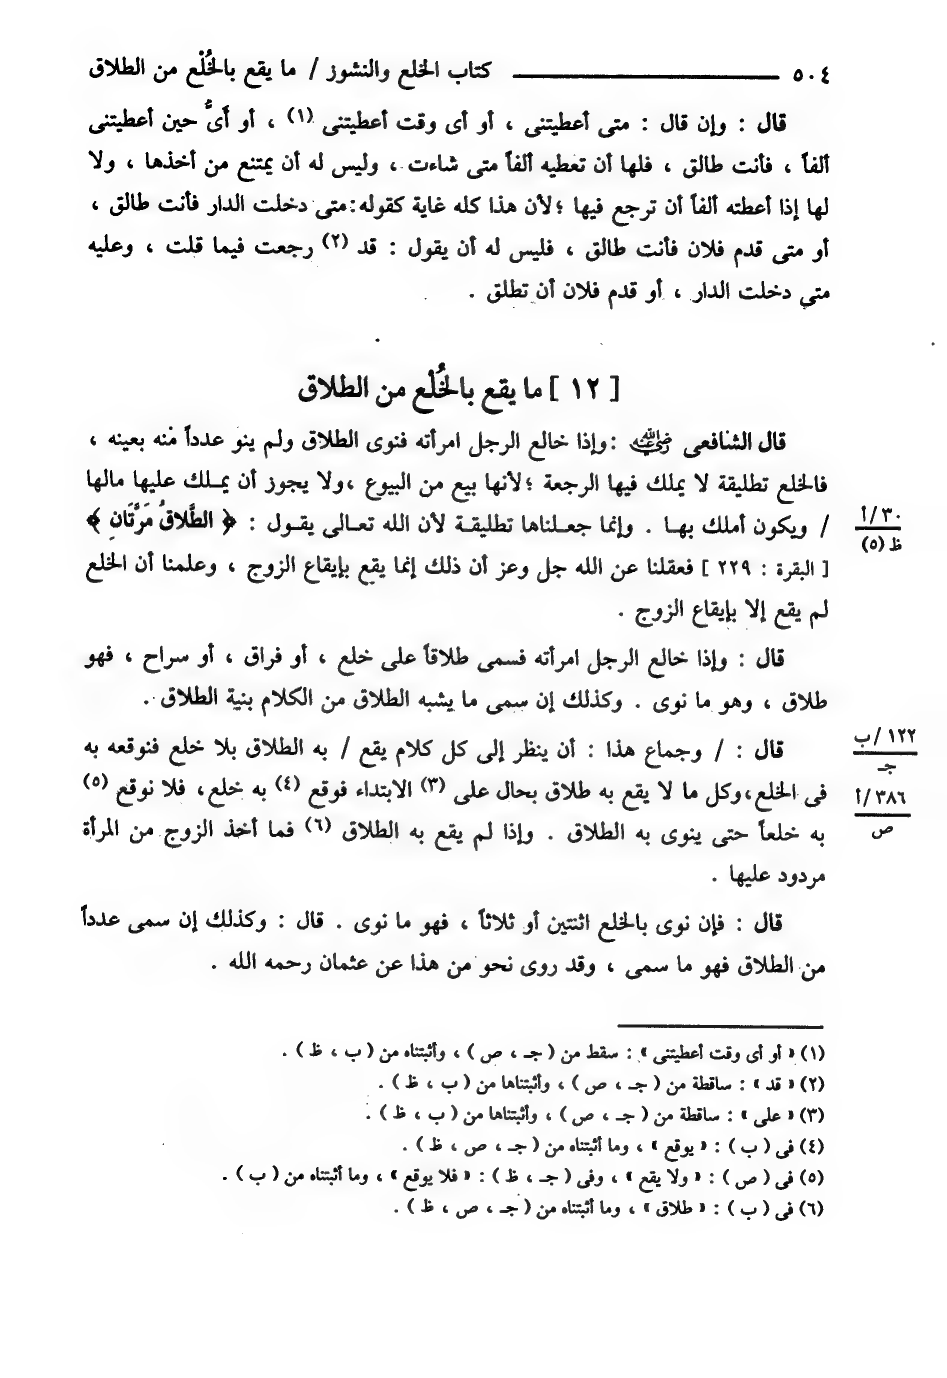 ٥٠٤ ــــــــــــــــــــ كتاب الخلع والنشوز / ما يقع بالخُلْع من الطلاق
قال : وإن قال : متى أعطيتنى ، أو أى وقت أعطيتنى (١) ، أو أىُّ حين أعطيتنى
ألفاً ، فأنت طالق ، فلها أن تعطيه ألفاً متى شاءت ، وليس له أن يمتنع من أخذها ، ولا
لها إذا أعطته ألفاً أن ترجع فيها ؛لأن هذا كله غاية كقوله:متى دخلت الدار فأنت طالق ،
أو متى قدم فلان فأنت طالق ، فليس له أن يقول : قد (٢) رجعت فيما قلت ، وعليه
متى دخلت الدار ، أو قدم فلان أن تطلق .
[ ١٢ ] ما يقع بالخُلْع من الطلاق
قال الشافعى رضي الله عنه :وإذا خالع الرجل امرأته فنوى الطلاق ولم ينو عدداً منه بعينه ،
فالخلع تطليقة لا يملك فيها الرجعة ؛لأنها بيع من البيوع ،ولا يجوز أن يملك عليها مالها
/ ويكون أملك بها . وإنما جعلناها تطليقة لأن الله تعالى يقول : ﴿ الطَّلاقُ مَرَّتَانِ ﴾
٣٠/أ
ظ (٥)
[ البقرة : ٢٢٩ ] فعقلنا عن الله جل وعز أن ذلك إنما يقع بإيقاع الزوج ، وعلمنا أن الخلع
لم يقع إلا بإيقاع الزوج .
قال : وإذا خالع الرجل امرأته فسمى طلاقاً على خلع ، أو فراق ، أو سراح ، فهو
طلاق ، وهو ما نوى . وكذلك إن سمى ما يشبه الطلاق من الكلام بنية الطلاق .
قال : / وجماع هذا : أن ينظر إلى كل كلام يقع / به الطلاق بلا خلع فنوقعه به
١٢٢/ب
جـ
فى الخلع،وكل ما لا يقع به طلاق بحال على (٣) الابتداء فوقع (٤) به خلع، فلا نوقع (٥)
٣٨٦/أ
ص
به خلعاً حتى ينوى به الطلاق . وإذا لم يقع به الطلاق (٦) فما أخذ الزوج من المرأة
مردود عليها .
قال : فإن نوى بالخلع اثنتين أو ثلاثاً ، فهو ما نوى . قال : وكذلك إن سمى عدداً
من الطلاق فهو ما سمى ، وقد روى نحو من هذا عن عثمان رحمه الله .
(١) « أو أى وقت أعطيتنى » : سقط من ( جـ ، ص ) ، وأثبتناه من ( ب ، ظ ) .
(٢) « قد » : ساقطة من ( جـ ، ص ) ، وأثبتناها من ( ب ، ظ ) .
(٣) « على » : ساقطة من ( جـ ، ص ) ، وأثبتناها من ( ب ، ظ ) .
(٤) فى ( ب ) : « يوقع » ، وما أثبتناه من ( جـ ، ص ، ظ ) .
(٥) فى ( ص ) : « ولا يقع » ، وفى ( جـ ، ظ ) : « فلا يوقع » ، وما أثبتناه من ( ب ) .
(٦) فى ( ب ) : « طلاق » ، وما أثبتناه من ( جـ ، ص ، ظ ) .